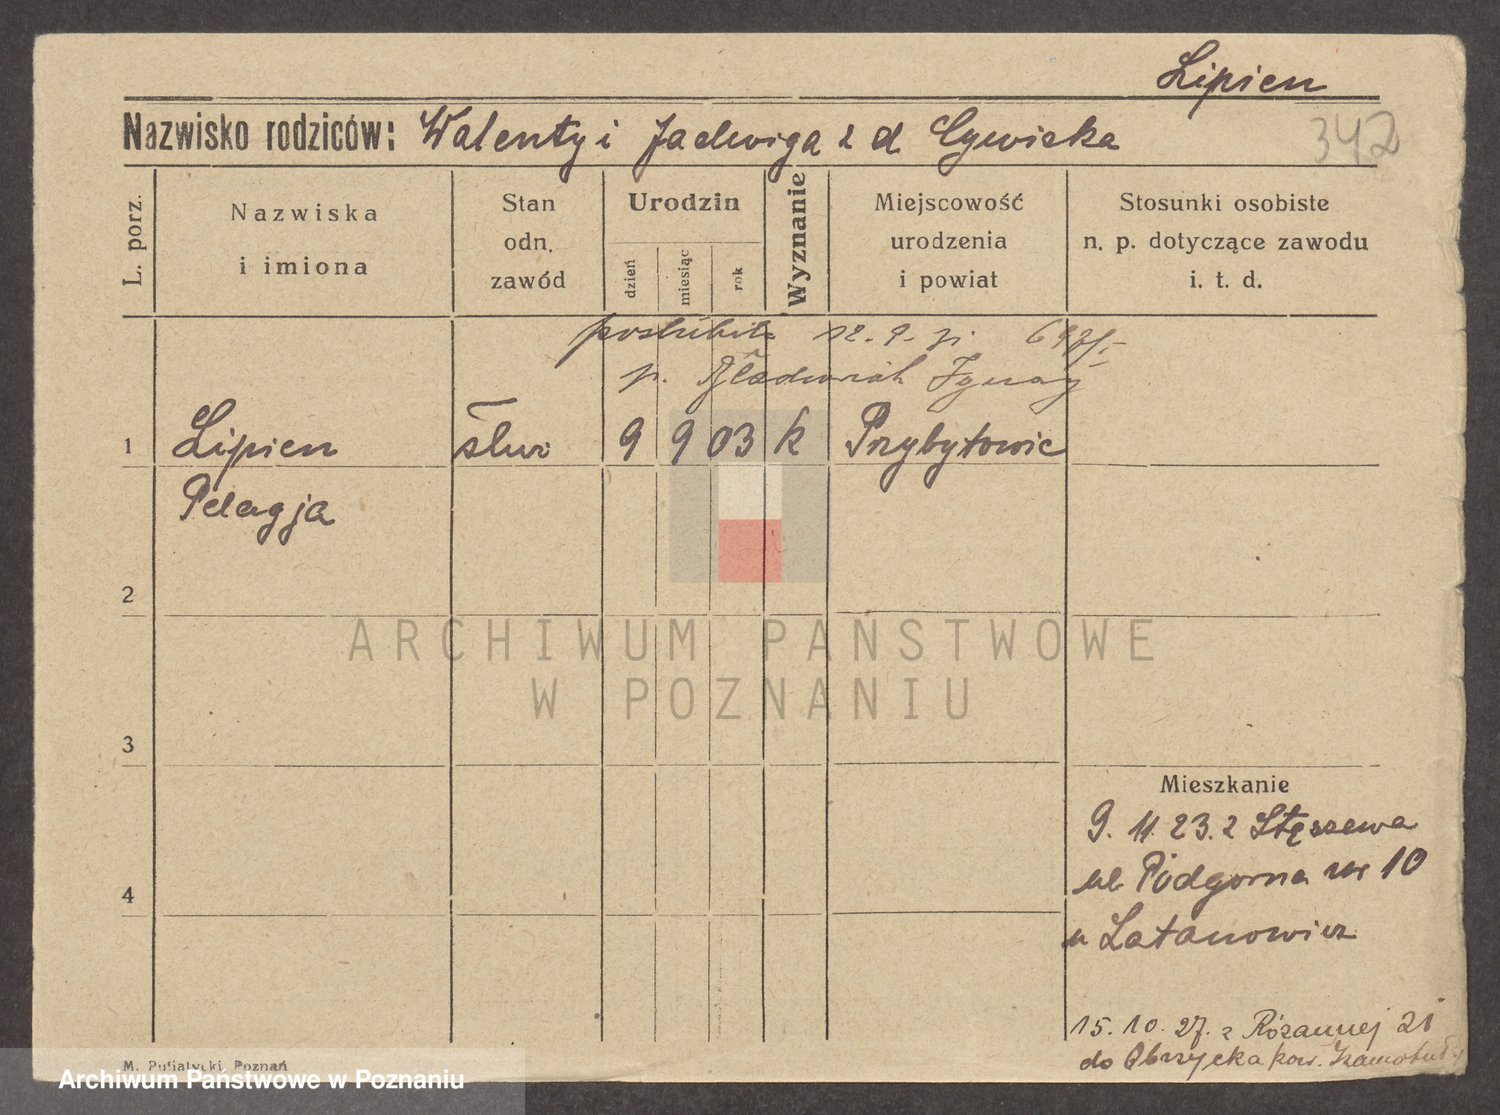 Lipien
Nazwisko rodziców: Walenty i Jadwiga z d Cywicka
342
L. porz.
Nazwiska
i imiona
Stan
odn.
zawód
Urodzin
dzień
miesiąc
rok
Wyznanie
Miejscowość
urodzenia
i powiat
Stosunki osobiste
n. p. dotyczące zawodu
i. t. d.
poslubiła 12. 9.
p. Ignacy
1 Lipien służ 9 9 03 k Przybytowie
Pelagja
2
ARCHIWUM PAŃSTWOWE
W POZNANIU
3
Mieszkanie
9. 11. 23. z Stęszewa
ul Podgorna nr 10
u Latanowicz
4
15. 10. 27. z Rózannej 21
do Obrzycka pow. Szamotuły
M. Putiatycki, Poznań
Archiwum Państwowe w Poznaniu